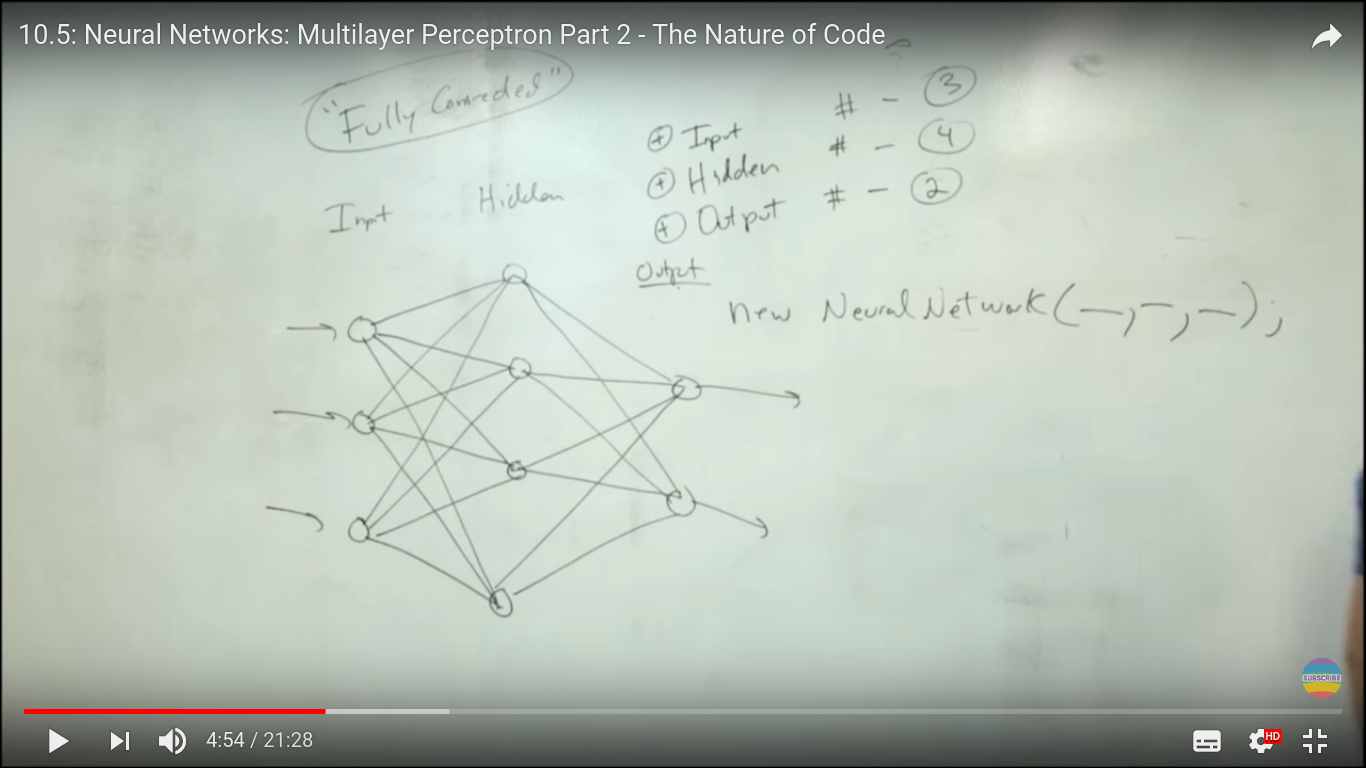 10.5: Neural Networks: Multilayer Perceptron Part 2 - The Nature of Code
"Fully Connected"
# - 3
+ Input # - 4
+ Hidden # - 2
+ Output
Input Hidden Output
new NeuralNetwork(—, —, —);
SUBSCRIBE
4:54 / 21:28
HD